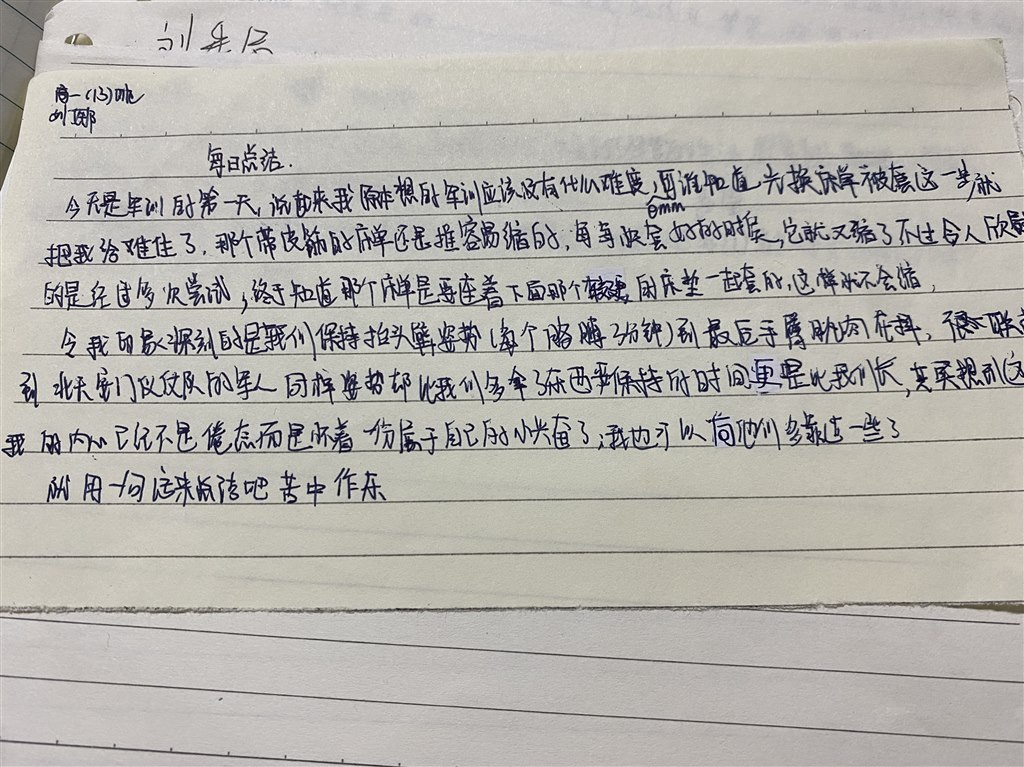 高一(13)班
刘
每日总结.
今天是军训的第一天,说起来我原本想的军训应该没有什么难度,可谁知道光换床单被套这一步就
0mm
把我给难住了,那个带皮筋的床单还是挺容易缩的,每每快套好的时候,它就又缩了不过令人欣慰
的是经过多次尝试,终于知道那个床单是要座着下面那个 床垫一起套的,这样水不会缩,
令我印象深刻的是我们保持抬头 姿势(每个胳膊3分钟)到最后手臂肌肉在抖,不禁联想
到 北天安门仪仗队的军人 同样姿势却比我们多拿了东西要保持的时间更是比我们长,其实想到这
我的内心已经不是倦态而是怀着一份属于自己的小兴奋了,我也可以向他们多靠近一些了
就用一句话来总结吧 苦中作乐